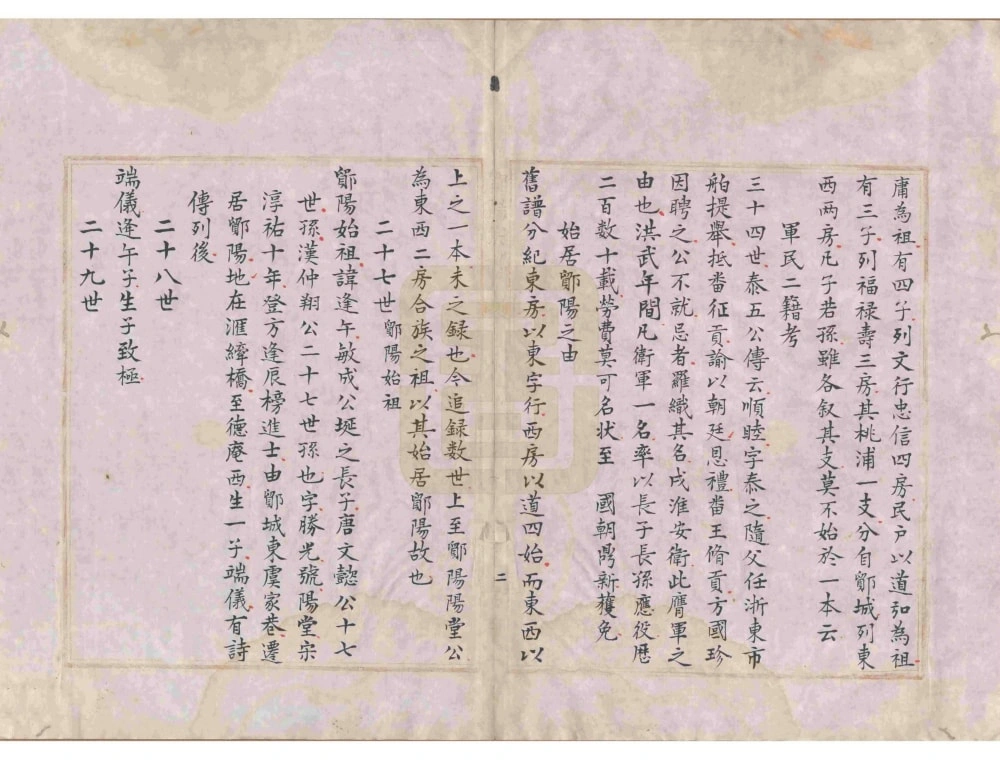 庸為祖有四子列文行忠信四房民戶以道弘為祖
有三子列福祿壽三房其桃浦一支分自鄮城列東
西两房凡子若孫雖各叙其支莫不始於一本云
軍民二籍考
三十四世泰五公傳云順睦字泰之隨父任浙東市
舶提舉抵畨征貢諭以朝廷恩禮畨王脩貢方國珍
因聘之公不就忌者羅織其名戍淮安衛此膺軍之
由也洪武年間凡衛軍一名率以長子長孫應役歴
二百数十載勞費莫可名状至　國朝鼎新獲免
始居鄮陽之由
舊譜分紀東房以東字行西房以道四始而東西以
二
上之一本未之録也今追録数世上至鄮陽陽堂公
為東西二房合族之祖以其始居鄮陽故也
二十七世鄮陽始祖
鄮陽始祖諱逢午敏成公埏之長子唐文懿公十七
世孫漢仲翔公二十七世孫也字勝光號陽堂宗
淳祐十年登方逢辰榜進士由鄮城東虞家巷遷
居鄮陽地在滙繂橋至德庵西生一子端儀有詩
傳列後
二十八世
端儀逢午子生子致極
二十九世